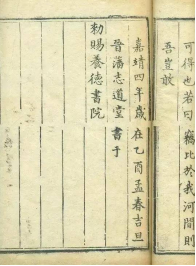 可得也若曰竊比於我河間則
吾豈敢
嘉靖四年歲在乙酉孟春吉旦
晉藩志道堂書于
勑賜養德書院